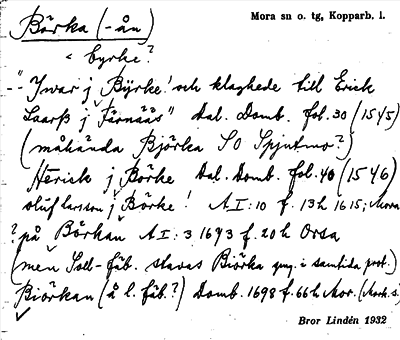 Börka (-ån)
Mora sn o. tg, Kopparb. l.
< byrke?
"Ivar j Byrke! och klaghede till Erick
Laarss j Färnääs" Dal. Domb. fol. 30 (1545)
(måhända Bjørka SO Spjutmo?)
Herick j Börke Dal. Domb. fol. 40 (1546)
oluf larsson j Börke! A I:10 f. 13h 1615; Mora
? på Börkan A I:3 1693 f. 20h Orsa
(men Soll-fäb. stavas Biörka i samtida prot.)
Biörkan (å l. fäb.?) Domb. 1698 f. 66h Mor.
Bror Lindén 1932